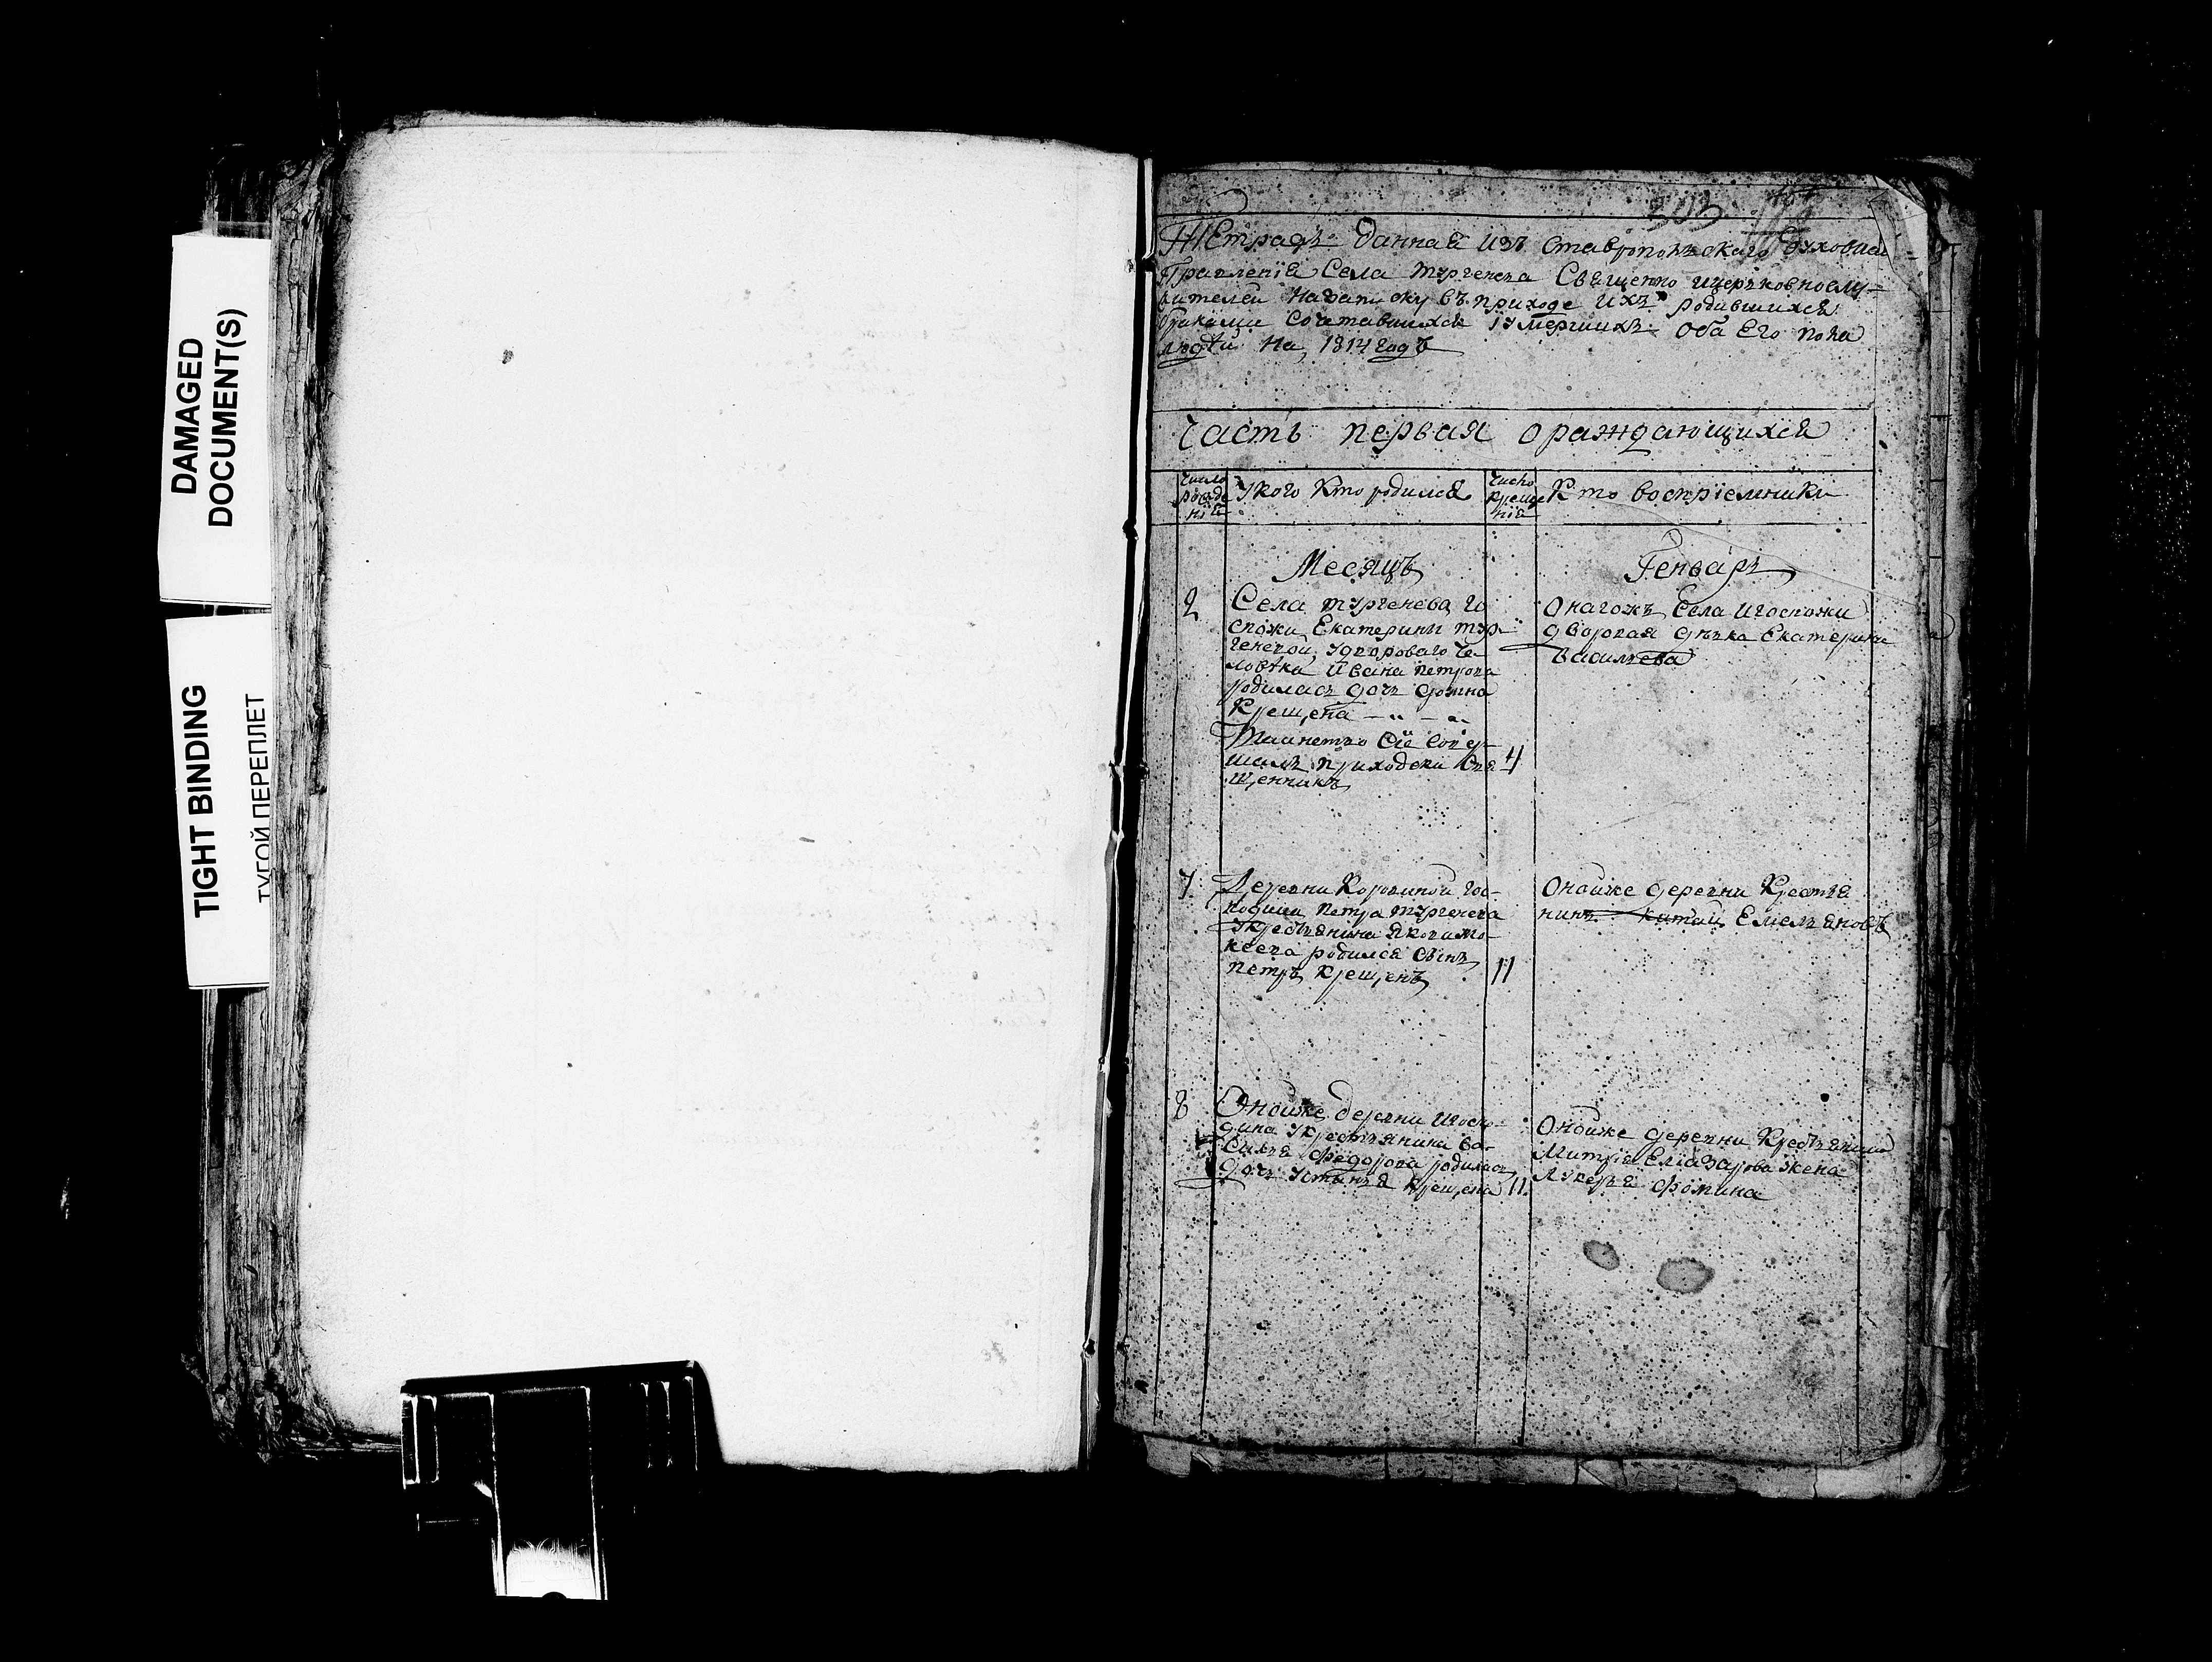 DAMAGED
DOCUMENT(S)
TIGHT BINDING
ТУГОЙ ПЕРЕПЛЕТ
503
Тетрадь данная изъ Ставропольскаго духовнаг
Правленія Села тургенева Священно ицерковнослу-
жителей Назаписку въ приходе ихъ родившихся
браками Сочетавшихся иумершихъ оба Его пола
людей На 1814 годъ
Часть первая о раждающихся
Число рожде нія
Укого Кто родился
Число Креще нія
Кто воспріемники
Месяцъ
Генварь
2
Села тургенева го
спожи Екатерины тур
геневой удвороваго Че
ловека Ивана петрова
родилась дочь домна
Крещена
Таинство Сіе Совер
шалъ приходски Свя
щенникъ
4
Онагожъ Села игоспожи
дворовая девка Екатерина
Васильева
7
Деревни Коровиной гос-
подина петра тургенева
укрестьянина Якова мо-
кеева родился Сынъ
петръ Крещенъ
11
Онойже деревни Крестья
нинъ Емельяновъ
8
Онойже деревни игоспо-
дина укрестьянина Ва-
Силья федорова родилась
дочь Устинья Крещена
11
Онойже деревни Крестьянина
Митрія Еліазарова жена
Лукерья фомина